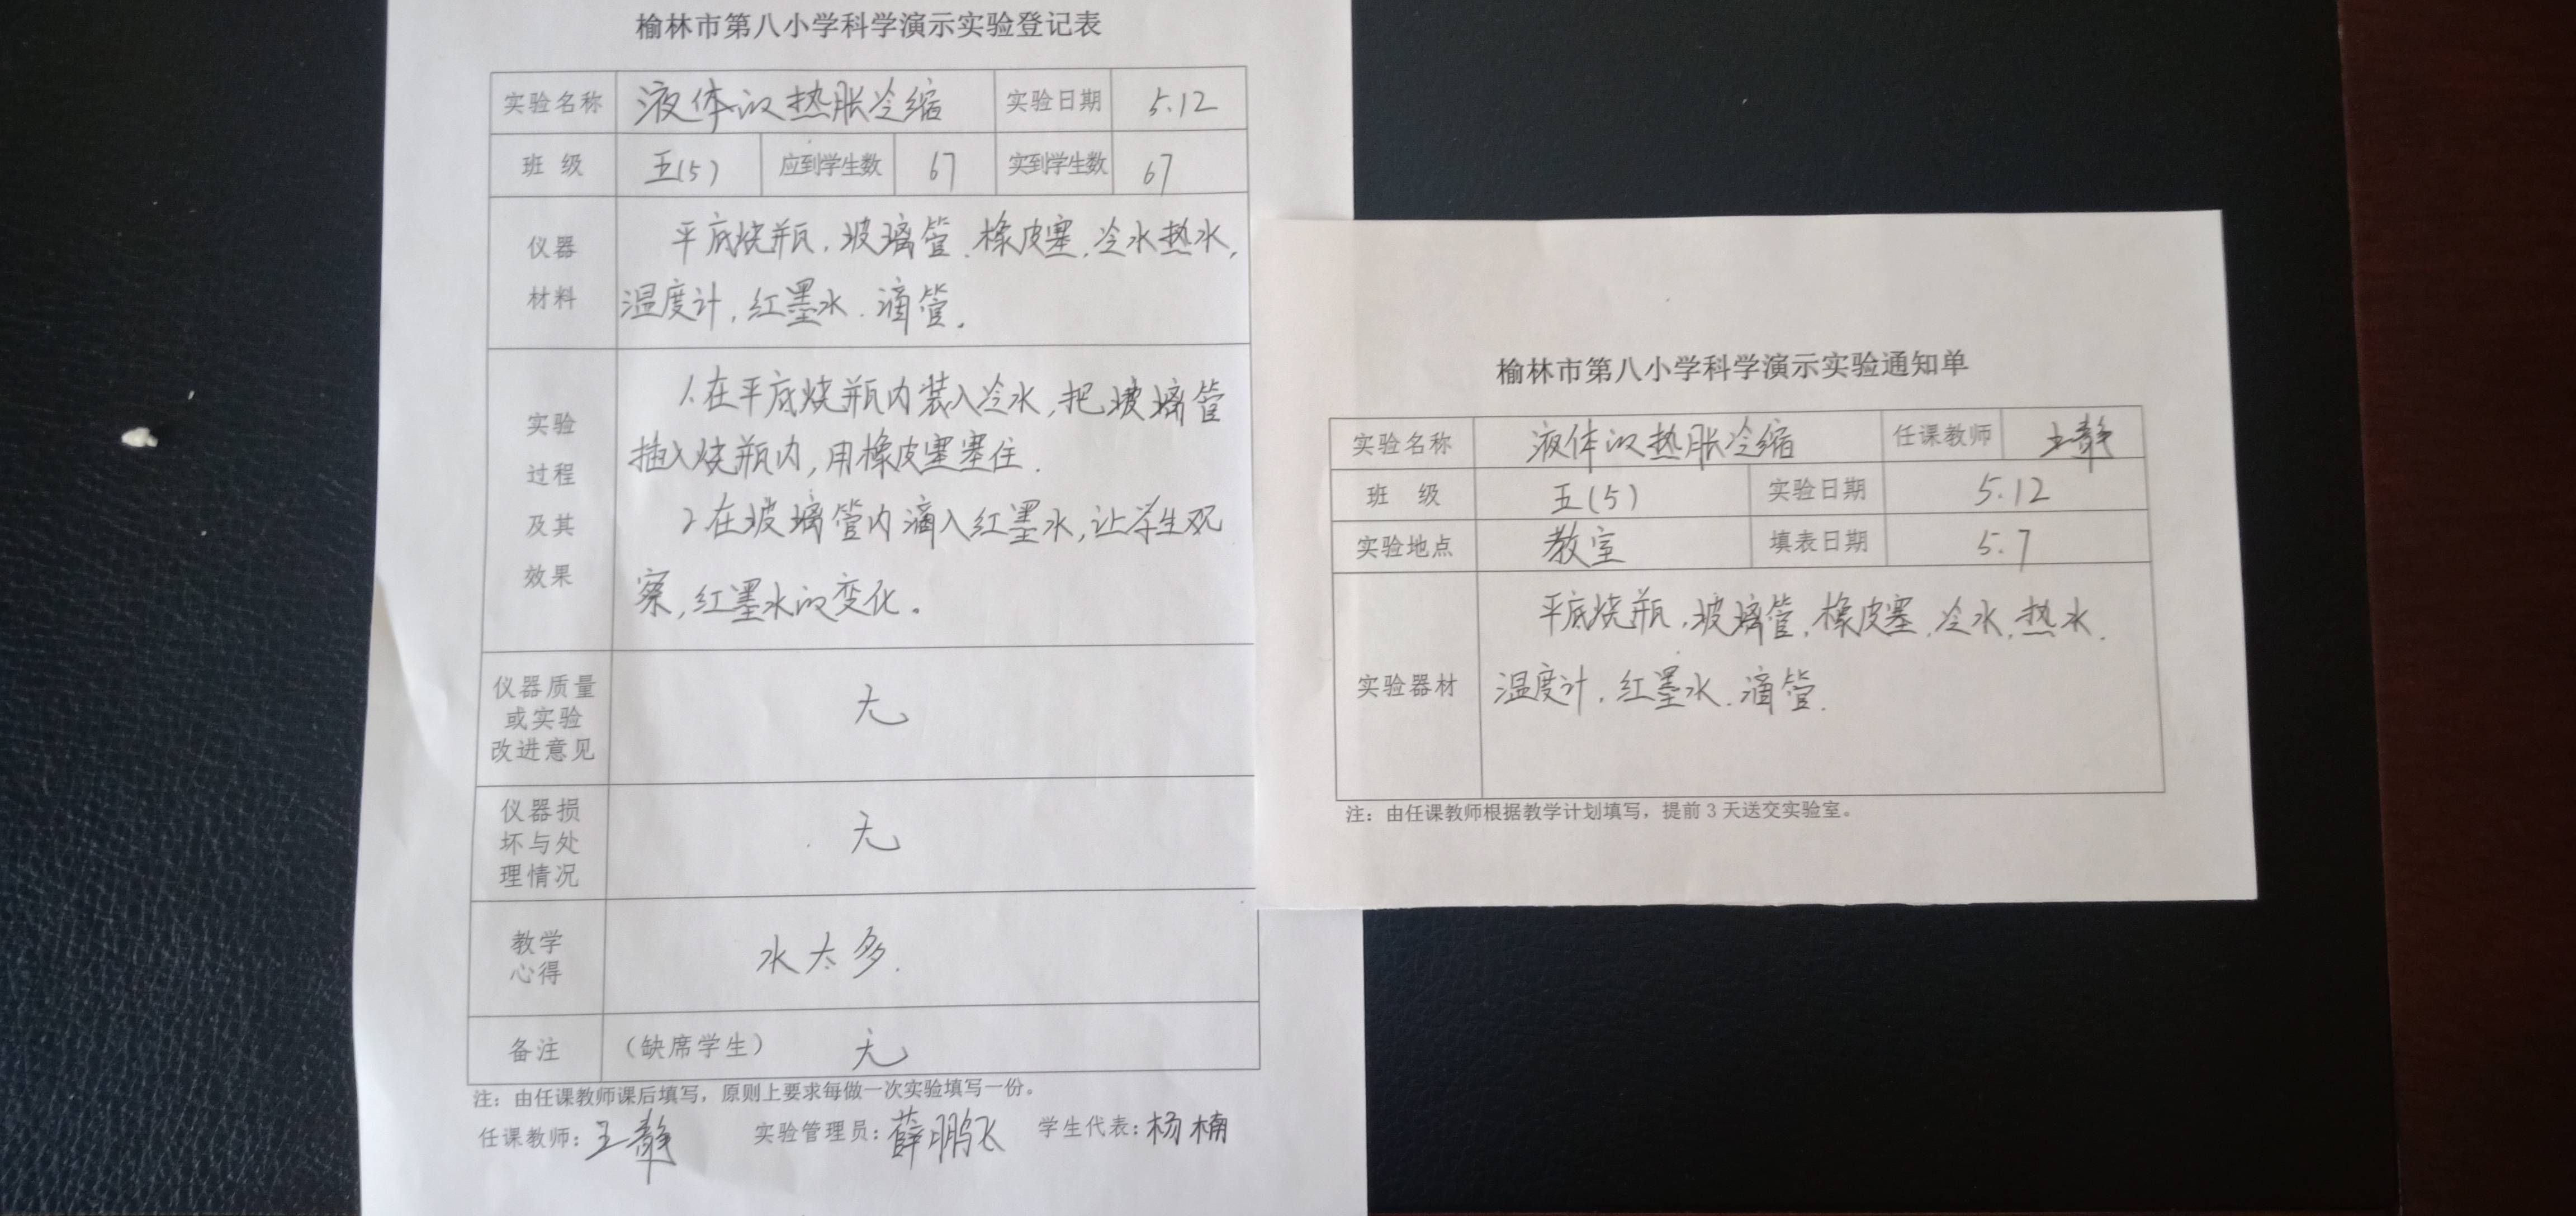 榆林市第八小学科学演示实验登记表
实验名称 液体的热胀冷缩 实验日期 5.12
班 级 五(5) 应到学生数 67 实到学生数 67
仪器
材料
平底烧瓶,玻璃管.橡皮塞,冷水热水,
温度计,红墨水.滴管。
实验
过程
及其
效果
1.在平底烧瓶内装入冷水,把玻璃管
插入烧瓶内,用橡皮塞塞住.
2在玻璃管内滴入红墨水,让学生观
察,红墨水的变化。
仪器质量
或实验
改进意见
无
仪器损
坏与处
理情况
无
教学
心得
水太多.
备注 (缺席学生) 无
注:由任课教师课后填写,原则上要求每做一次实验填写一份。
任课教师:王静 实验管理员:薛鹏飞 学生代表:杨楠
榆林市第八小学科学演示实验通知单
实验名称 液体的热胀冷缩 任课教师 王静
班 级 五(5) 实验日期 5.12
实验地点 教室 填表日期 5.7
实验器材
平底烧瓶,玻璃管,橡皮塞,冷水,热水.
温度计,红墨水.滴管.
注:由任课教师根据教学计划填写,提前3天送交实验室。